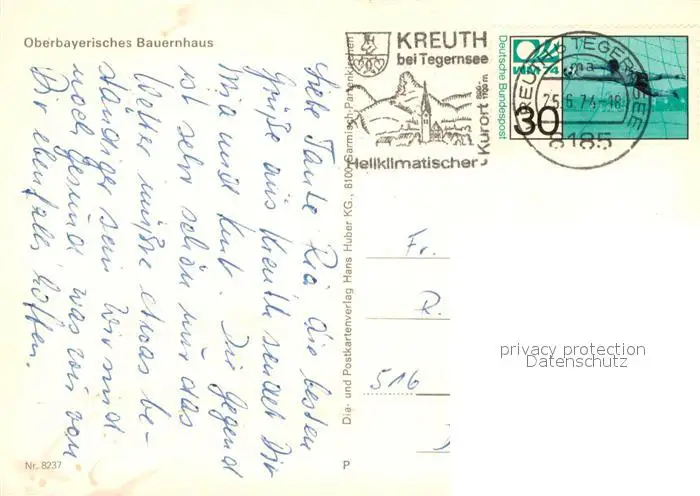 Oberbayerisches Bauernhaus
Liebe Tante Ria die besten
Grüße aus Kreuth sendet Dir
Mia und Kurt. Die Gegend
ist sehr schön nur das
Wetter müßte etwas be-
ständiger sein. Wir sind
noch gesund was wir von
Dir ebenfalls hoffen.
Nr. 8237
Dia- und Postkartenverlag Hans Huber KG., 8100 Garmisch-Partenkirchen
P
KREUTH
bei Tegernsee
800-
1700 m
Heilklimatischer
Kurort
KREUTH TEGERNSEE
25.6.74-18
8185
Deutsche Bundespost
WM 74
30
Fr.
R.
516
privacy protection
Datenschutz